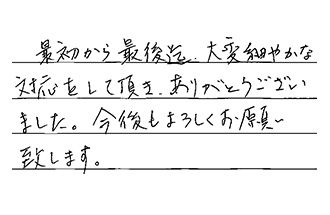 最初から最後迄、大変細やかな
対応をして頂き、ありがとうござい
ました。今後もよろしくお願い
致します。